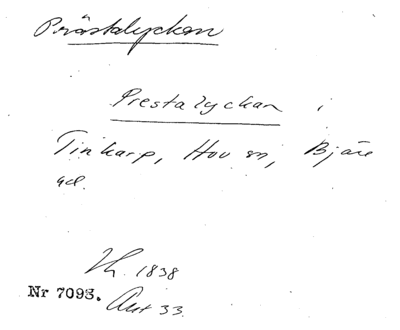 Prästalyckan
Prestalyckan i
Tinkarp, Hov sn, Bjäre
hd.
Lh. 1838
Nr 7093. Akt 33.